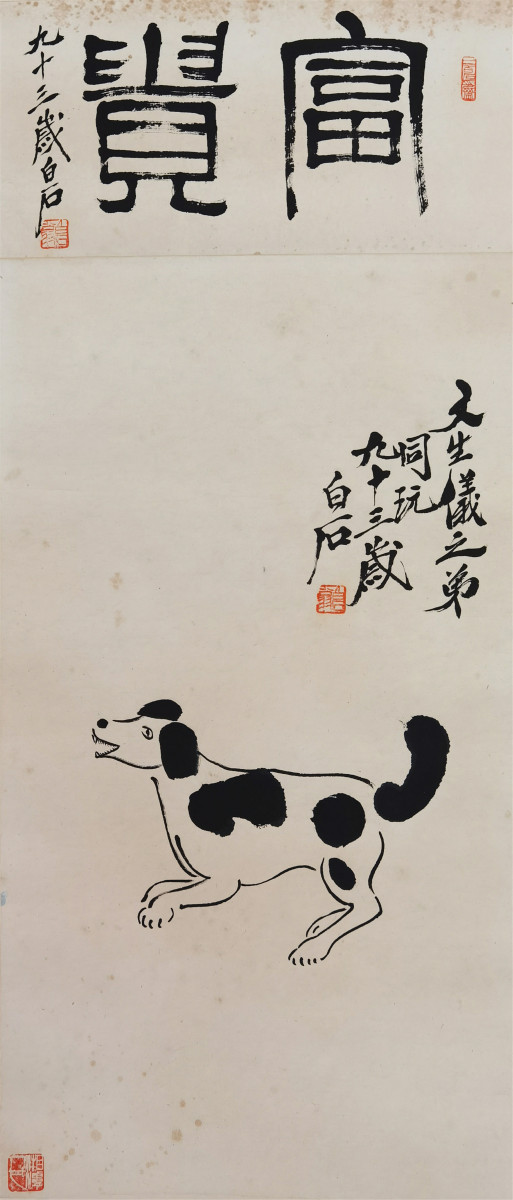 富貴
九十三歲白石
文生儀之弟
同玩
九十三歲
白石